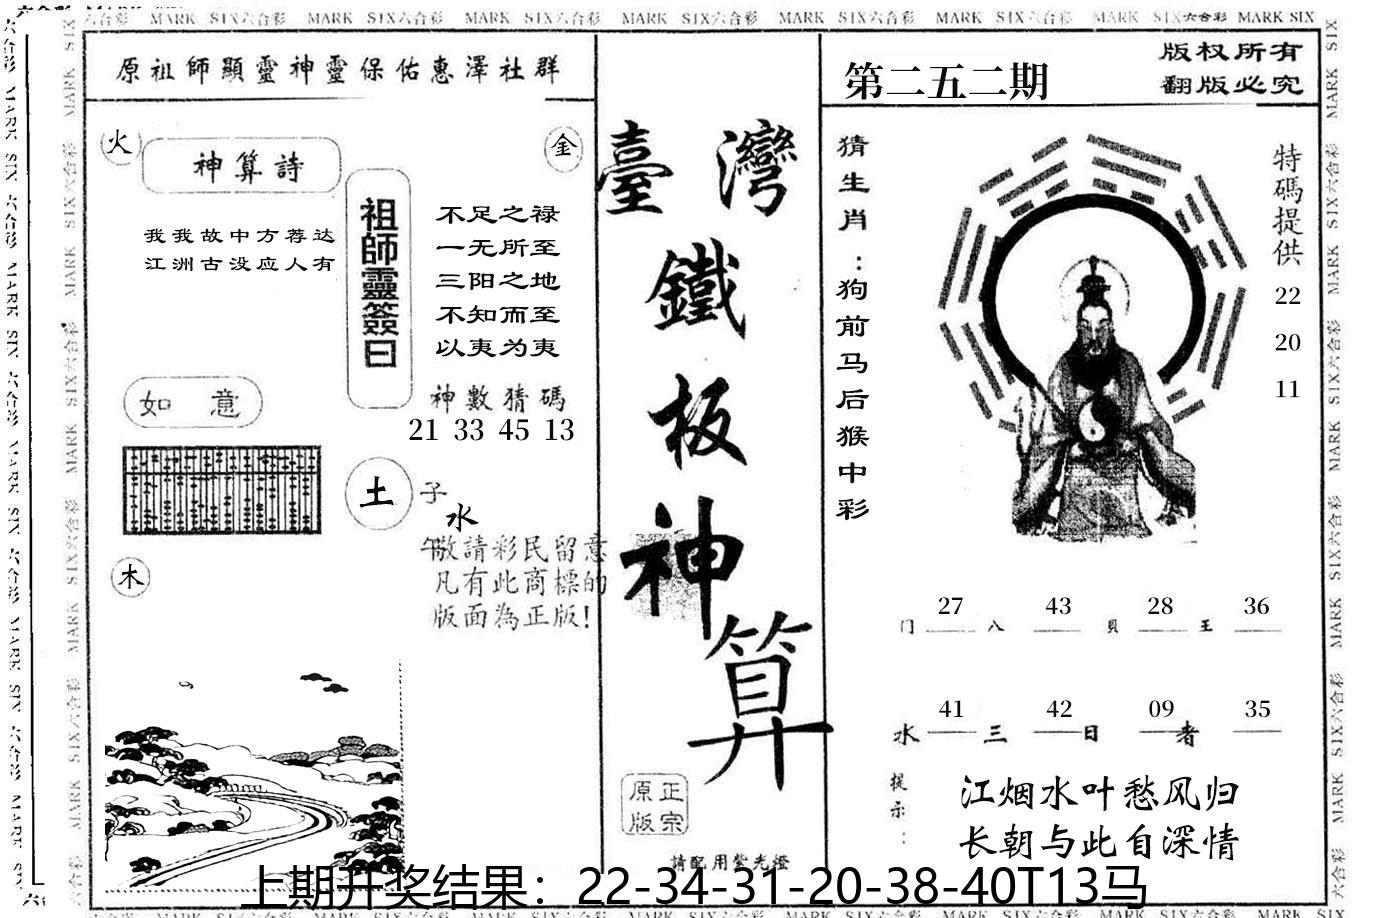 MARK SIX六合彩 MARK SIX六合彩 MARK SIX六合彩 MARK SIX六合彩 MARK SIX六合彩 MARK SIX六合彩 MARK SIX六合彩 MARK SIX
原祖師顯靈神靈保佑惠澤社群
火
金
神算詩
我我故中方荐达
江洲古没应人有
祖師靈簽曰
不足之禄
一无所至
三阳之地
不知而至
以夷为夷
神數猜碼
21 33 45 13
如意
土
子
水
午
木
敬請彩民留意
凡有此商標的
版面為正版!
臺灣
鐵板神算
正宗
原版
請配用紫光燈
第二五二期
版权所有
翻版必究
猜生肖:狗前马后猴中彩
特碼提供
22
20
11
27 43 28 36
门 八 貝 王
41 42 09 35
水 三 日 者
提示:
江烟水叶愁风归
长朝与此自深情
上期开奖结果：22-34-31-20-38-40T13马